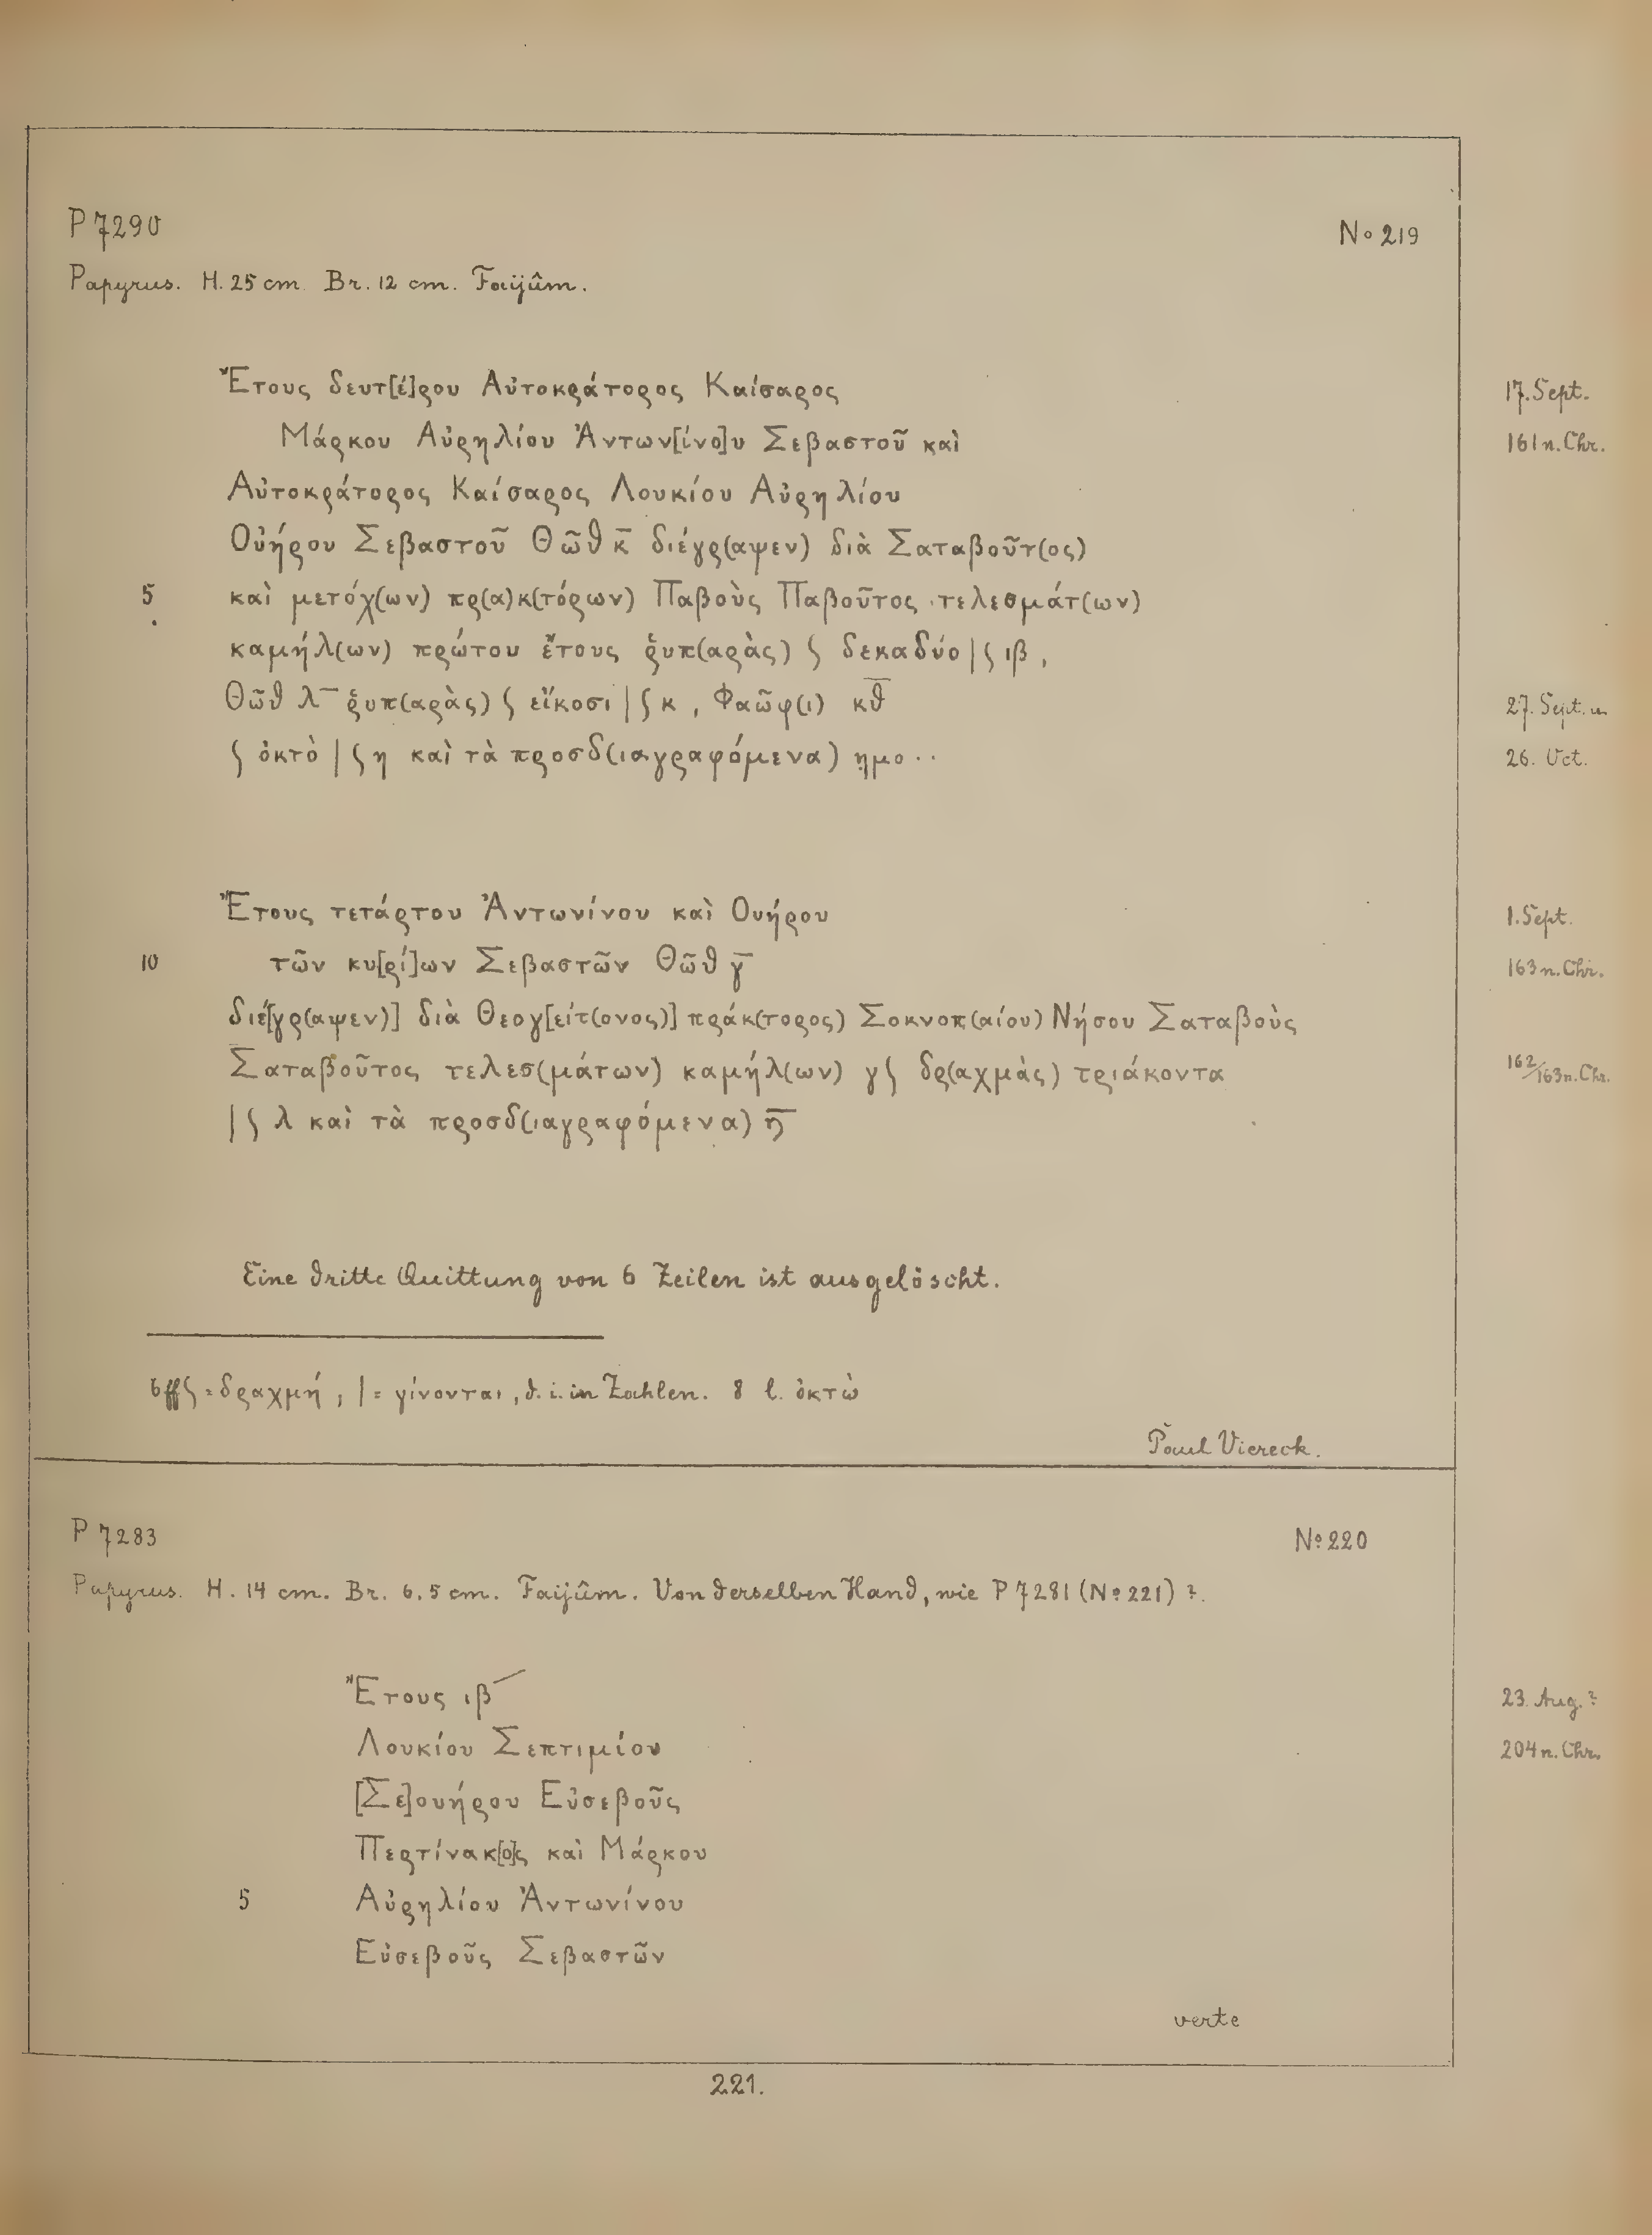 P 7290
No 219
Papyrus. H. 25 cm. Br. 12 cm. Faijûm.
Ἔτους δευτ[έ]ρου Αὐτοκράτορος Καίσαρος
17. Sept.
Μάρκου Αὐρηλίου Ἀντων[ίνο]υ Σεβαστοῦ καὶ
161 n. Chr.
Αὐτοκράτορος Καίσαρος Λουκίου Αὐρηλίου
Οὐήρου Σεβαστοῦ Θῶθ κ̅ διέγρ(αψεν) διὰ Σαταβοῦτ(ος)
5 καὶ μετόχ(ων) πρ(α)κ(τόρων) Παβοὺς Παβοῦτος τελεσμάτ(ων)
καμήλ(ων) πρώτου ἔτους ῥυπ(αρὰς) ʃ δεκαδύο | ʃ ιβ,
Θῶθ λ̅ ῥυπ(αρὰς) ʃ εἴκοσι | ʃ κ, Φαῶφ(ι) κθ̅
27. Sept. u.
ʃ ὀκτὸ | ʃ η καὶ τὰ προσδ(ιαγραφόμενα) ημο..
26. Oct.
Ἔτους τετάρτου Ἀντωνίνου καὶ Ουήρου
1. Sept.
10 τῶν κυ[ρί]ων Σεβαστῶν Θῶθ γ̅
163 n. Chr.
διέ[γρ(αψεν)] διὰ Θεογ[είτ(ονος)] πράκ(τορος) Σοκνοπ(αίου) Νήσου Σαταβοὺς
Σαταβοῦτος τελεσ(μάτων) καμήλ(ων) γʃ δρ(αχμὰς) τριάκοντα
162/163 n. Chr.
| ʃ λ καὶ τὰ προσδ(ιαγραφόμενα) η̅
Eine dritte Quittung von 6 Zeilen ist ausgelöscht.
6 ff ʃ = δραχμή, | = γίνονται, d. i. in Zahlen. 8 l. ὀκτὼ
Paul Viereck.
P 7283
No 220
Papyrus. H. 14 cm. Br. 6,5 cm. Faijûm. Von derselben Hand, wie P 7281 (No 221)?
Ἔτους ιβ
23. Aug.?
Λουκίου Σεπτιμίου
204 n. Chr.
[Σε]ουήρου Εὐσεβοῦς
Περτίνακ[ο]ς καὶ Μάρκου
5 Αὐρηλίου Ἀντωνίνου
Εὐσεβοῦς Σεβαστῶν
verte
221.